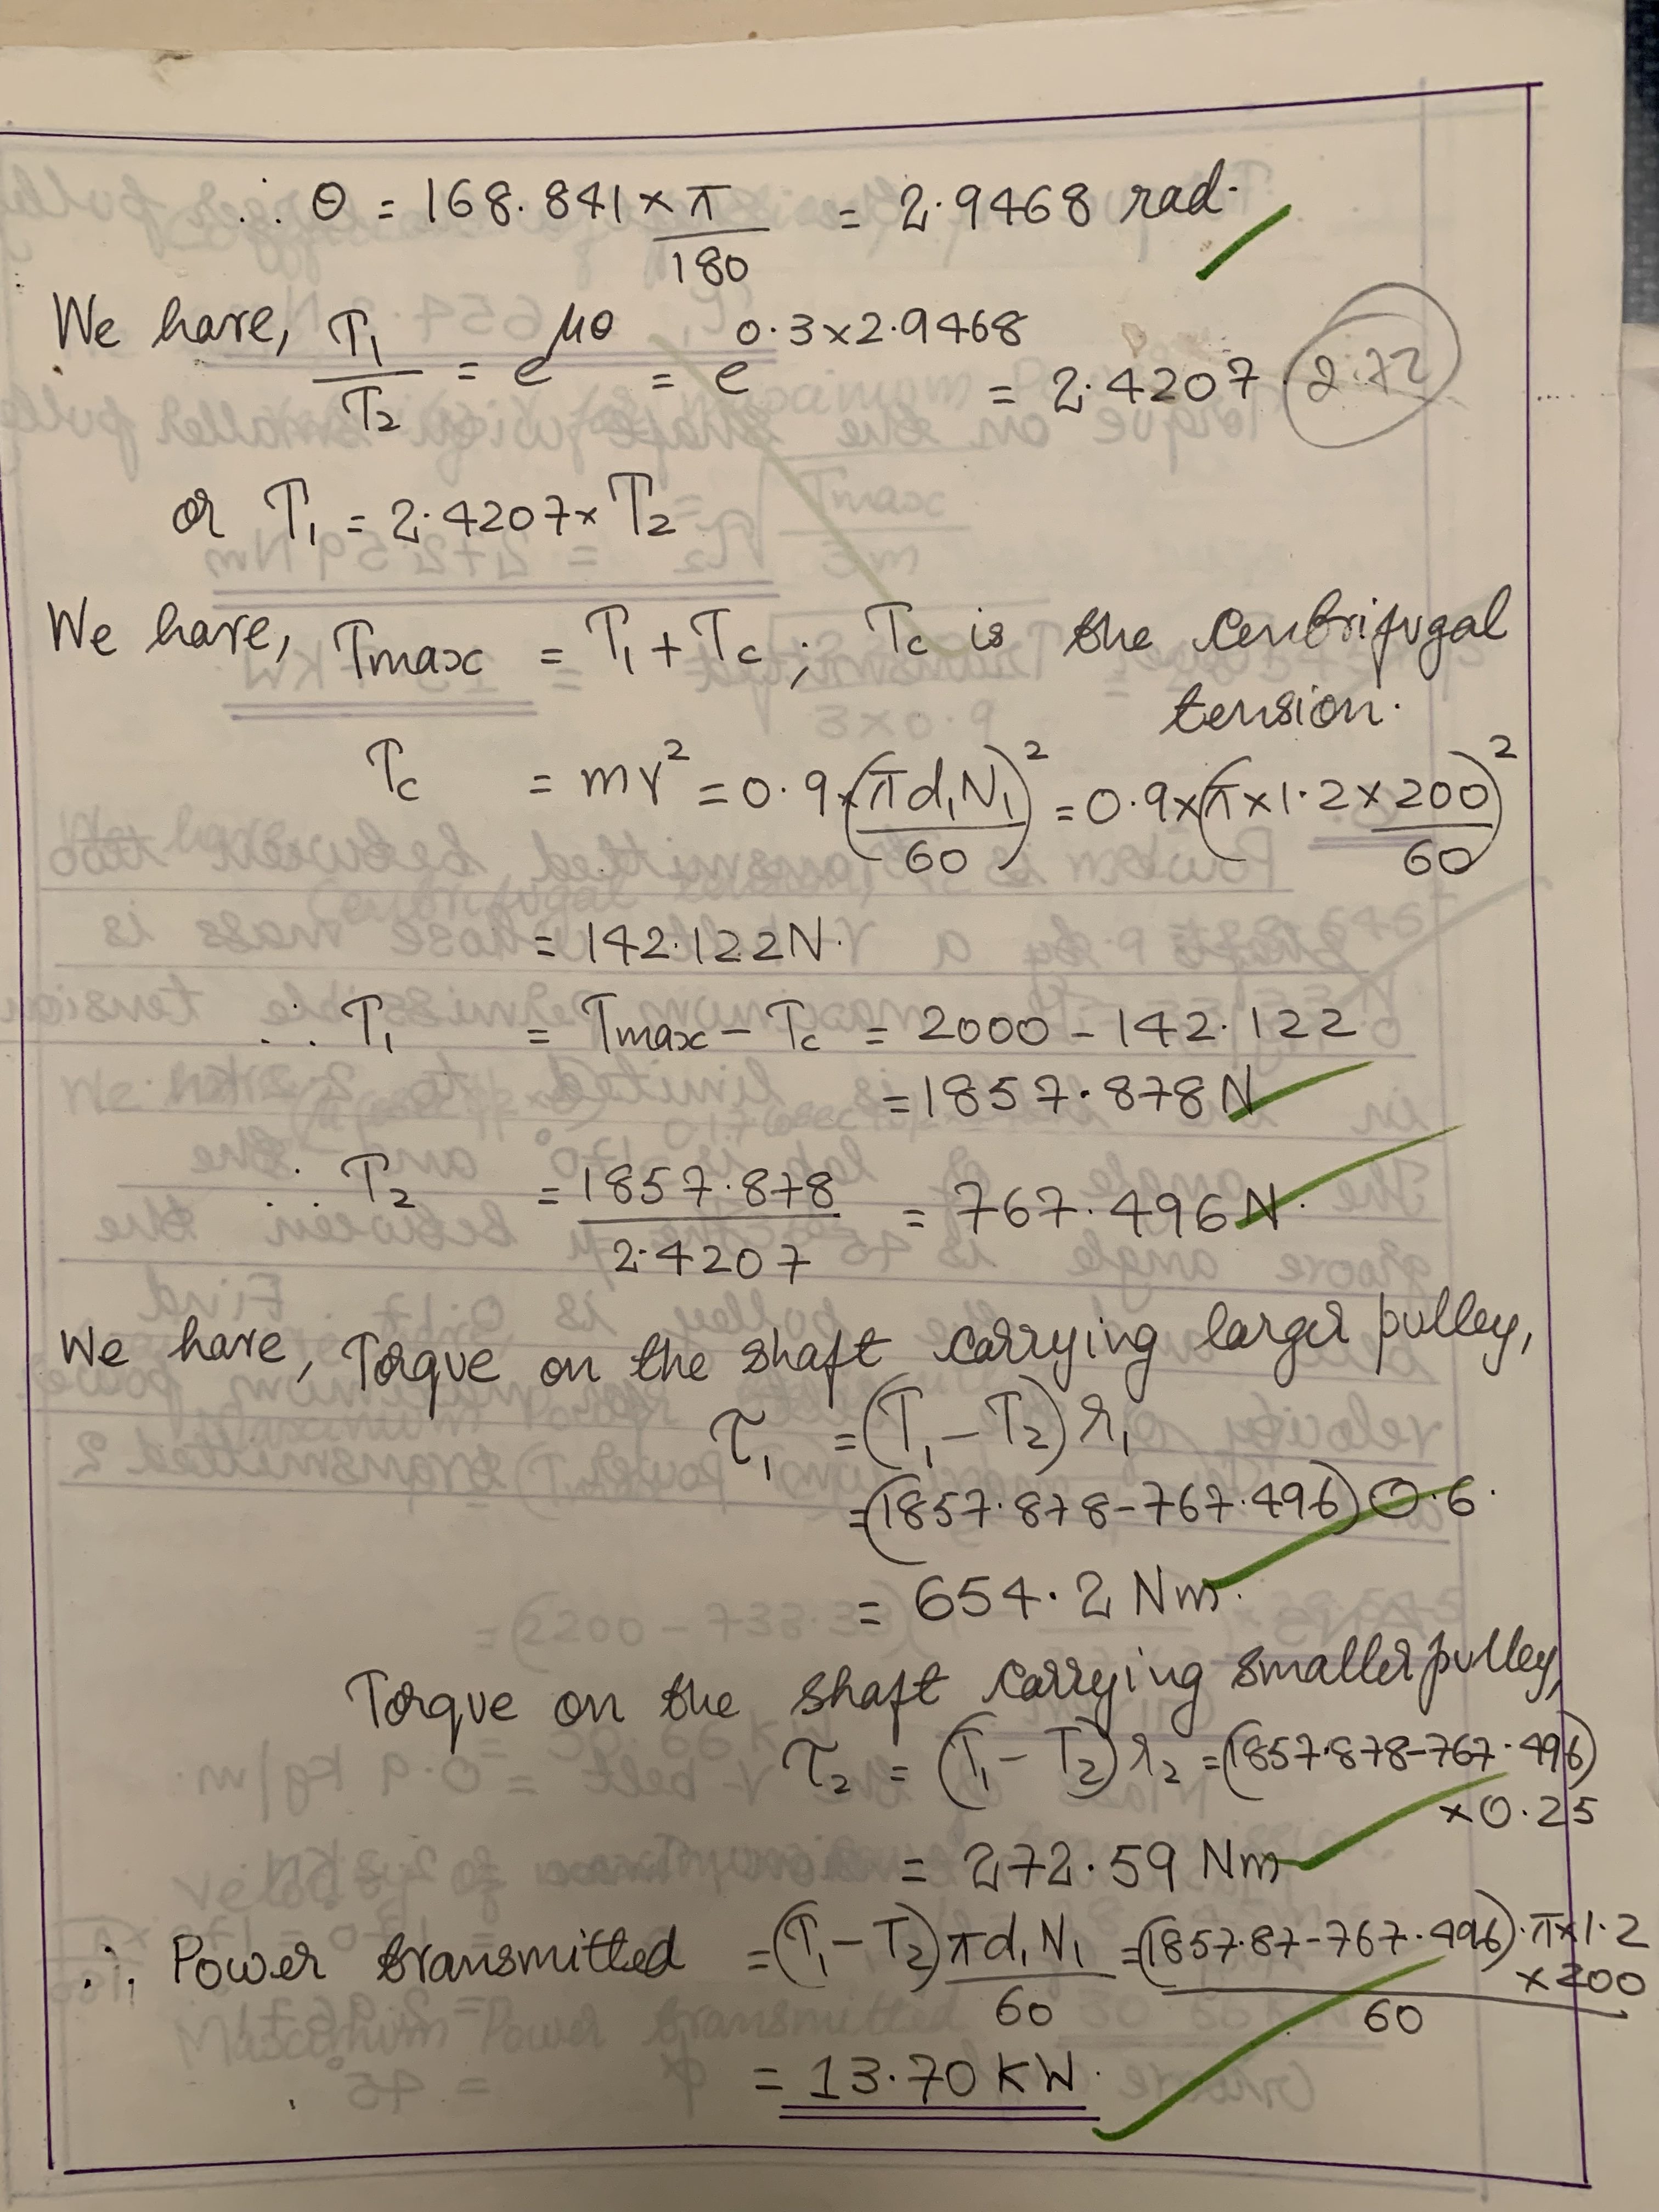 ∴ θ = 168.841 × π/180 = 2.9468 rad.
We have, T₁/T₂ = e^μθ = e^0.3×2.9468 = 2.4207 2.72
or T₁ = 2.4207 × T₂
We have, Tmax = T₁ + Tc ; Tc is the centrifugal
tension.
Tc = mv² = 0.9 × (πd₁N₁/60)² = 0.9 × (π × 1.2 × 200/60)²
= 142.122 N.
∴ T₁ = Tmax – Tc = 2000 – 142.122
= 1857.878 N
∴ T₂ = 1857.878/2.4207 = 767.496 N.
We have, Torque on the shaft carrying larger pulley,
τ₁ = (T₁ – T₂) r₁
= (1857.878 – 767.496) 0.6.
= 654.2 Nm.
Torque on the shaft carrying smaller pulley,
τ₂ = (T₁ – T₂) r₂ = (1857.878 – 767.496)
× 0.25
= 272.59 Nm
∴ Power transmitted = (T₁ – T₂) πd₁N₁/60 = (1857.87 – 767.496) . π × 1.2 × 200/60
= 13.70 KW.